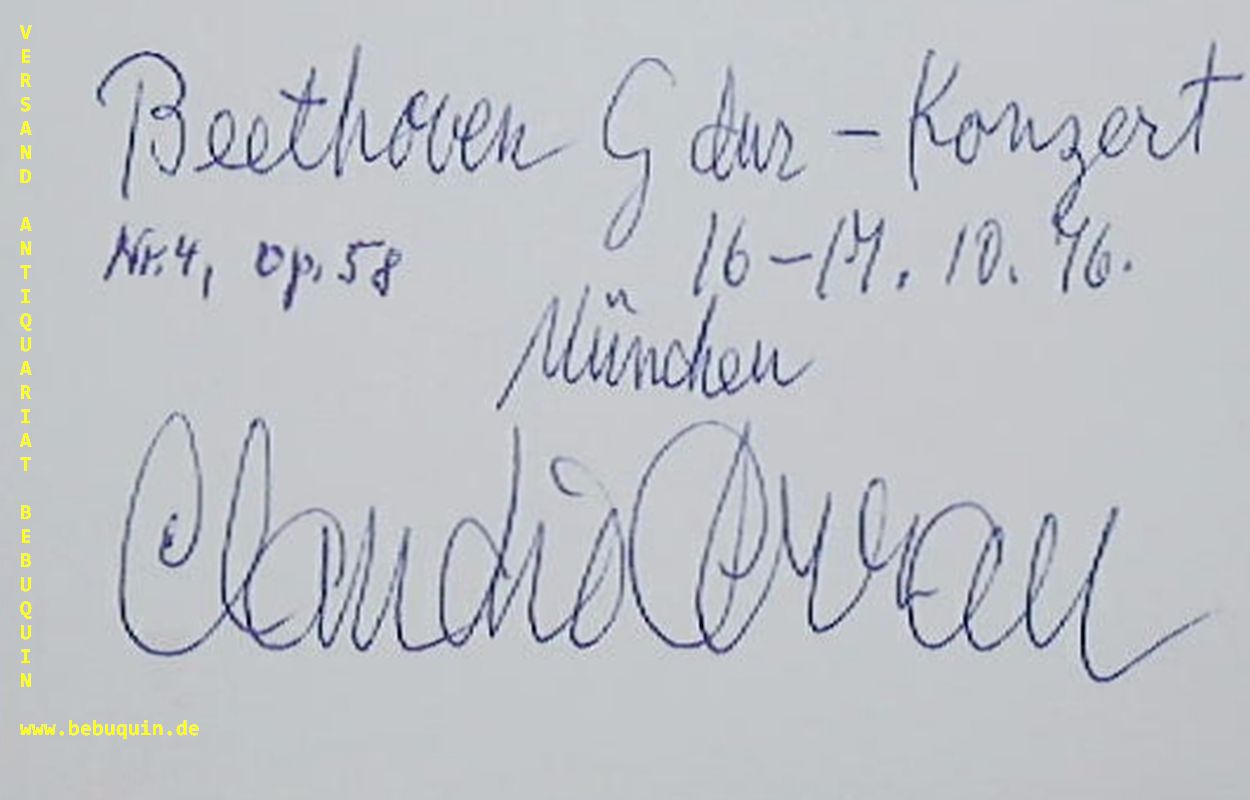 Beethoven G dur - Konzert
Nr. 4, Op. 58
16-17. 10. 76.
München
Claudio Arrau
VERSAND ANTIQUARIAT BEBUQUIN
www.bebuquin.de